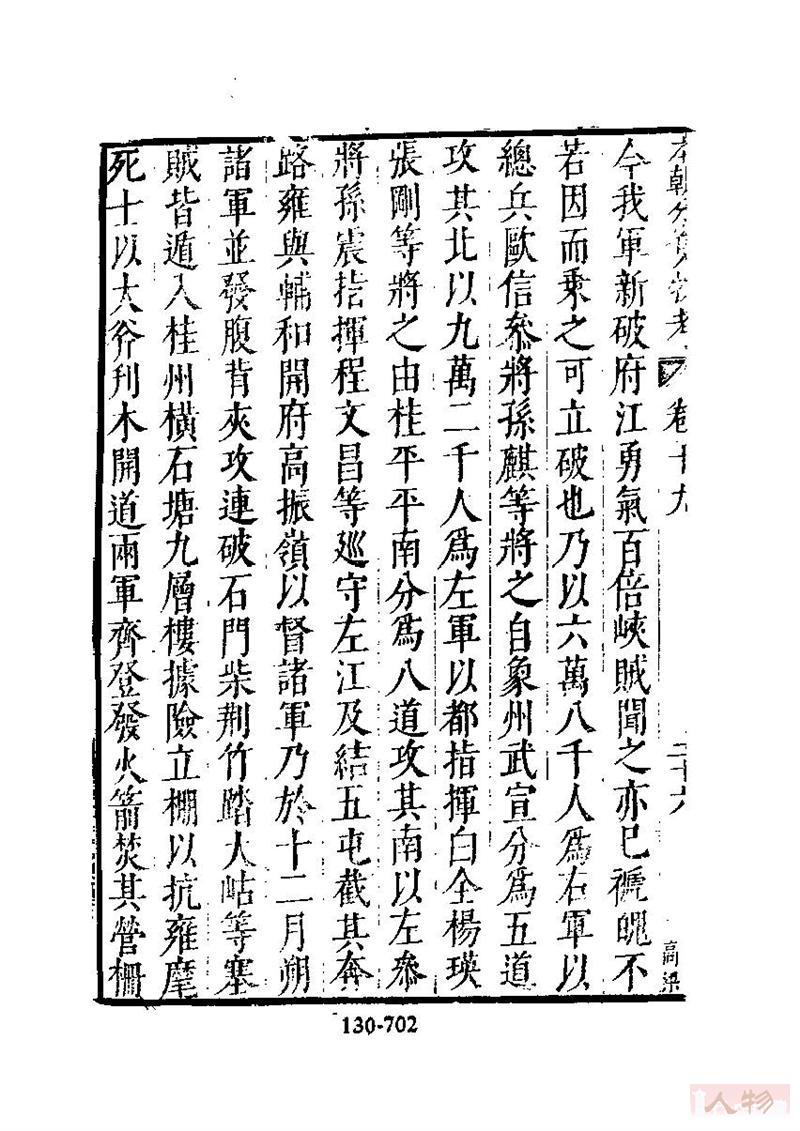 本朝分省人物考 卷十九 二十六 高梁
今我軍新破府江勇氣百倍峽賊聞之亦已褫魄不
若因而乘之可立破也乃以六萬八千人爲右軍以
總兵歐信叅將孫麒等將之自象州武宣分爲五道
攻其北以九萬二千人爲左軍以都指揮白全楊瑛
張剛等將之由桂平平南分爲八道攻其南以左叅
將孫震指揮程文昌等廵守左江及結五屯截其奔
路雍與輔和開府高振嶺以督諸軍乃於十二月朔
諸軍並發腹背夾攻連破石門柴荆竹踏大岵等寨
賊皆遁入桂州橫石塘九層樓據險立柵以抗雍麾
死士以大斧刋木開道兩軍齊登發火箭焚其營柵
130-702
人物